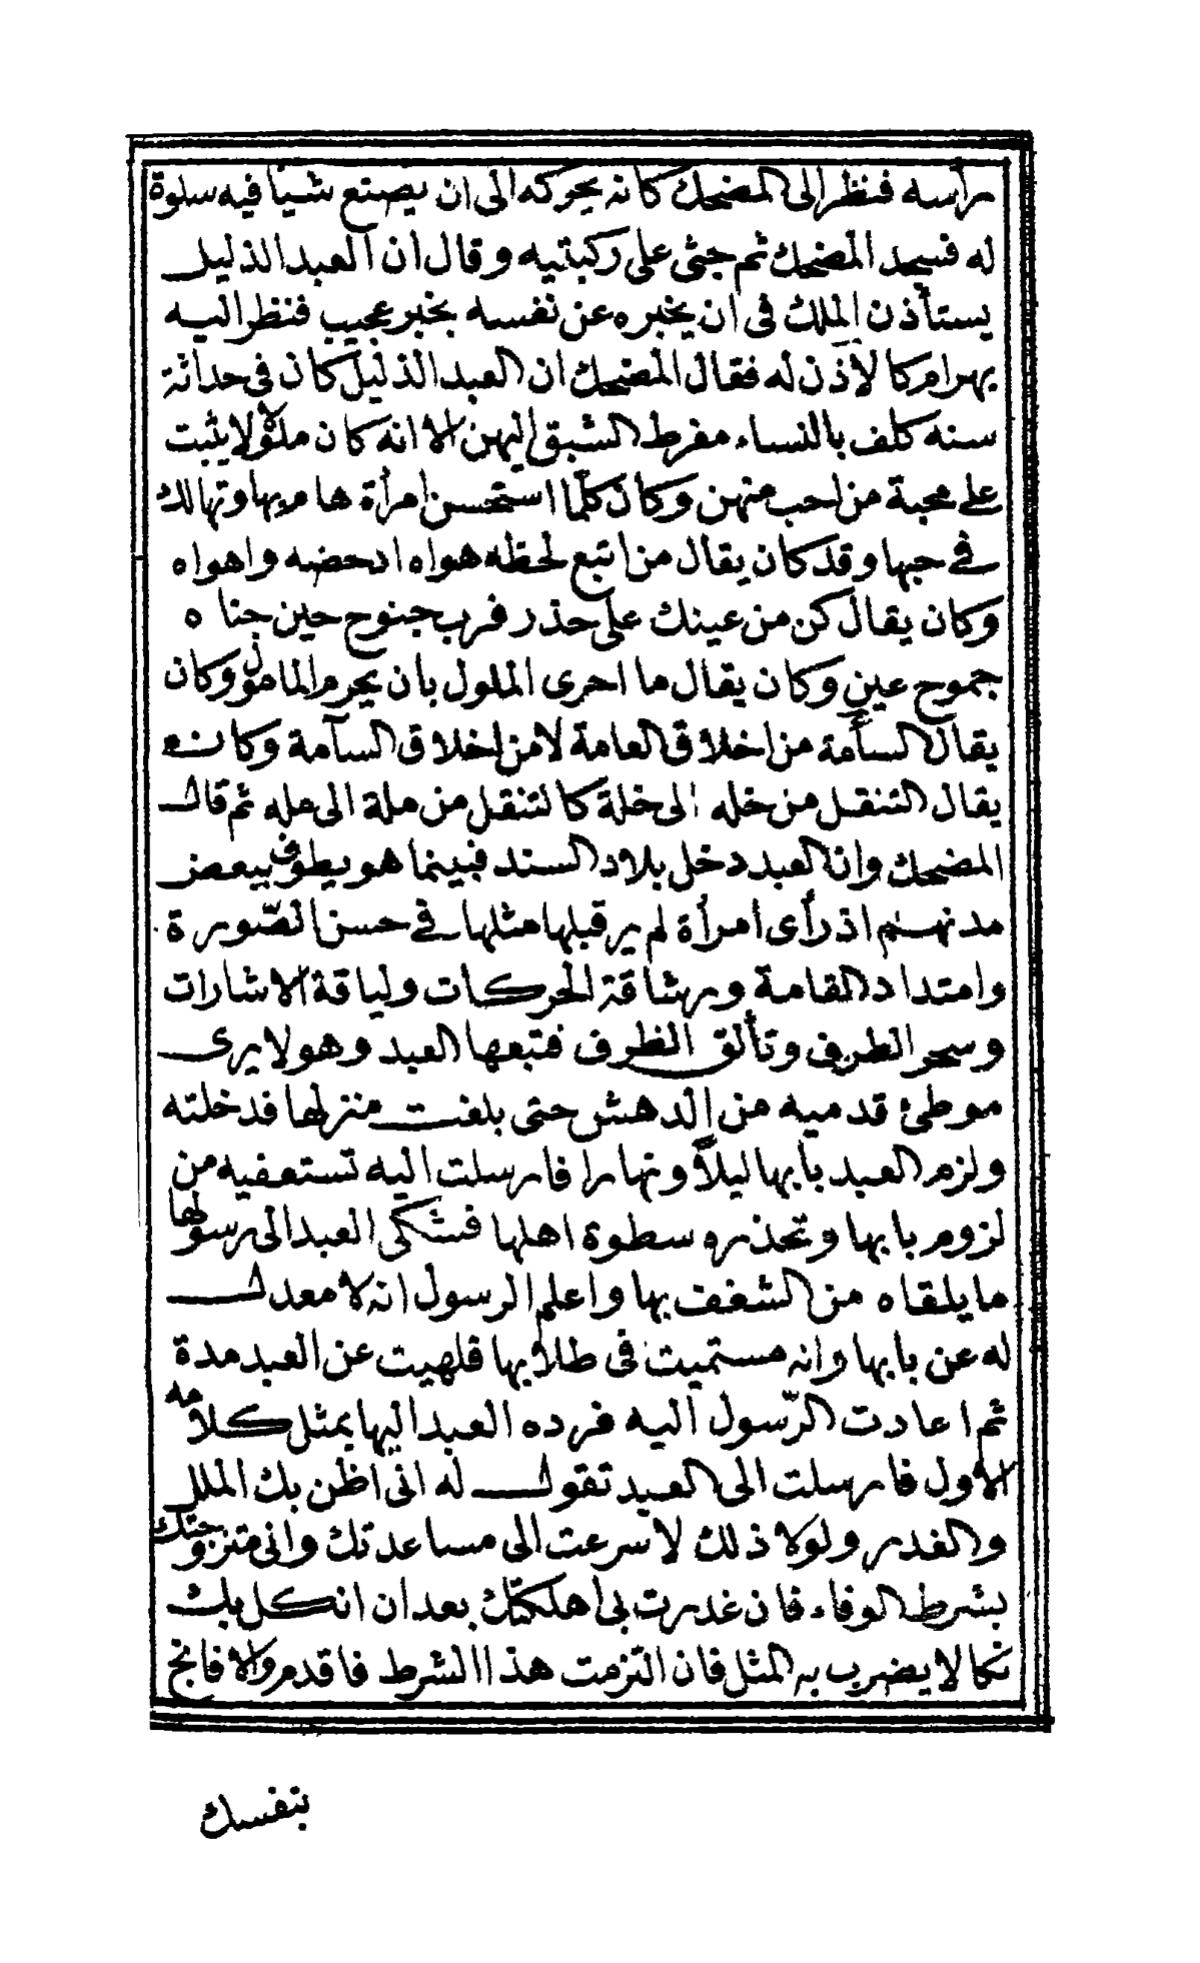 رأسه فنظر الى المضحك كانه يحركه الى ان يصنع شيأ فيه سلوة
له فسجد المضحك ثم جثى على ركبتيه وقال ان العبد الذليل
يستأذن الملك فى ان يخبره عن نفسه بخبر عجيب فنظر اليه
بهرام كالاذن له فقال المضحك ان العبد الذليل كان فى حداثة
سنه كلف بالنساء مفرط الشبق اليهن الا انه كان ملولا لا يثبت
على محبة من احب منهن وكان كلما استحسن امرأة هام بها وتهالك
فى حبها وقد كان يقال من اتبع لحظه هواه ادحضه واهواه
وكان يقال كن من عينك على حذر فرب جنوح حين جناه
جموح عين وكان يقال ما احرى الملول بان يحرم المامول وكان
يقال السأمة من اخلاق العامة لا من اخلاق السآمة وكان
يقال التنقل من خله الى خلة كالتنقل من ملة الى مله ثم قال
المضحك وان العبد دخل بلاد السند فبينما هو يطوف ببعض
مدنهم اذ رأى امرأة لم ير قبلها مثلها فى حسن الصّورة
وامتداد القامة ورشاقة الحركات ولياقة الاشارات
وسحر الطرف وتألق الظرف فتبعها العبد وهو لا يرى
موطئ قدميه من الدهش حتى بلغت منزلها فدخلته
ولزم العبد بابها ليلاً ونهارا فارسلت اليه تستعفيه من
لزوم بابها وتحذره سطوة اهلها فشكى العبد الى رسولها
ما يلقاه من الشغف بها واعلم الرسول انه لا معدل
له عن بابها وانه مستميت فى طلابها فلهيت عن العبد مدة
ثم اعادت الرّسول اليه فرده العبد اليها بمثل كلامه
الاول فارسلت الى العبد تقول له انى اظن بك الملل
والغدر ولولا ذلك لاسرعت الى مساعدتك وانى متزوجتك
بشرط الوفاء فان غدرت بى اهلكتك بعد ان انكل بك
نكالا يضرب به المثل فان التزمت هذا الشرط فاقدم والا فانج
بنفسك